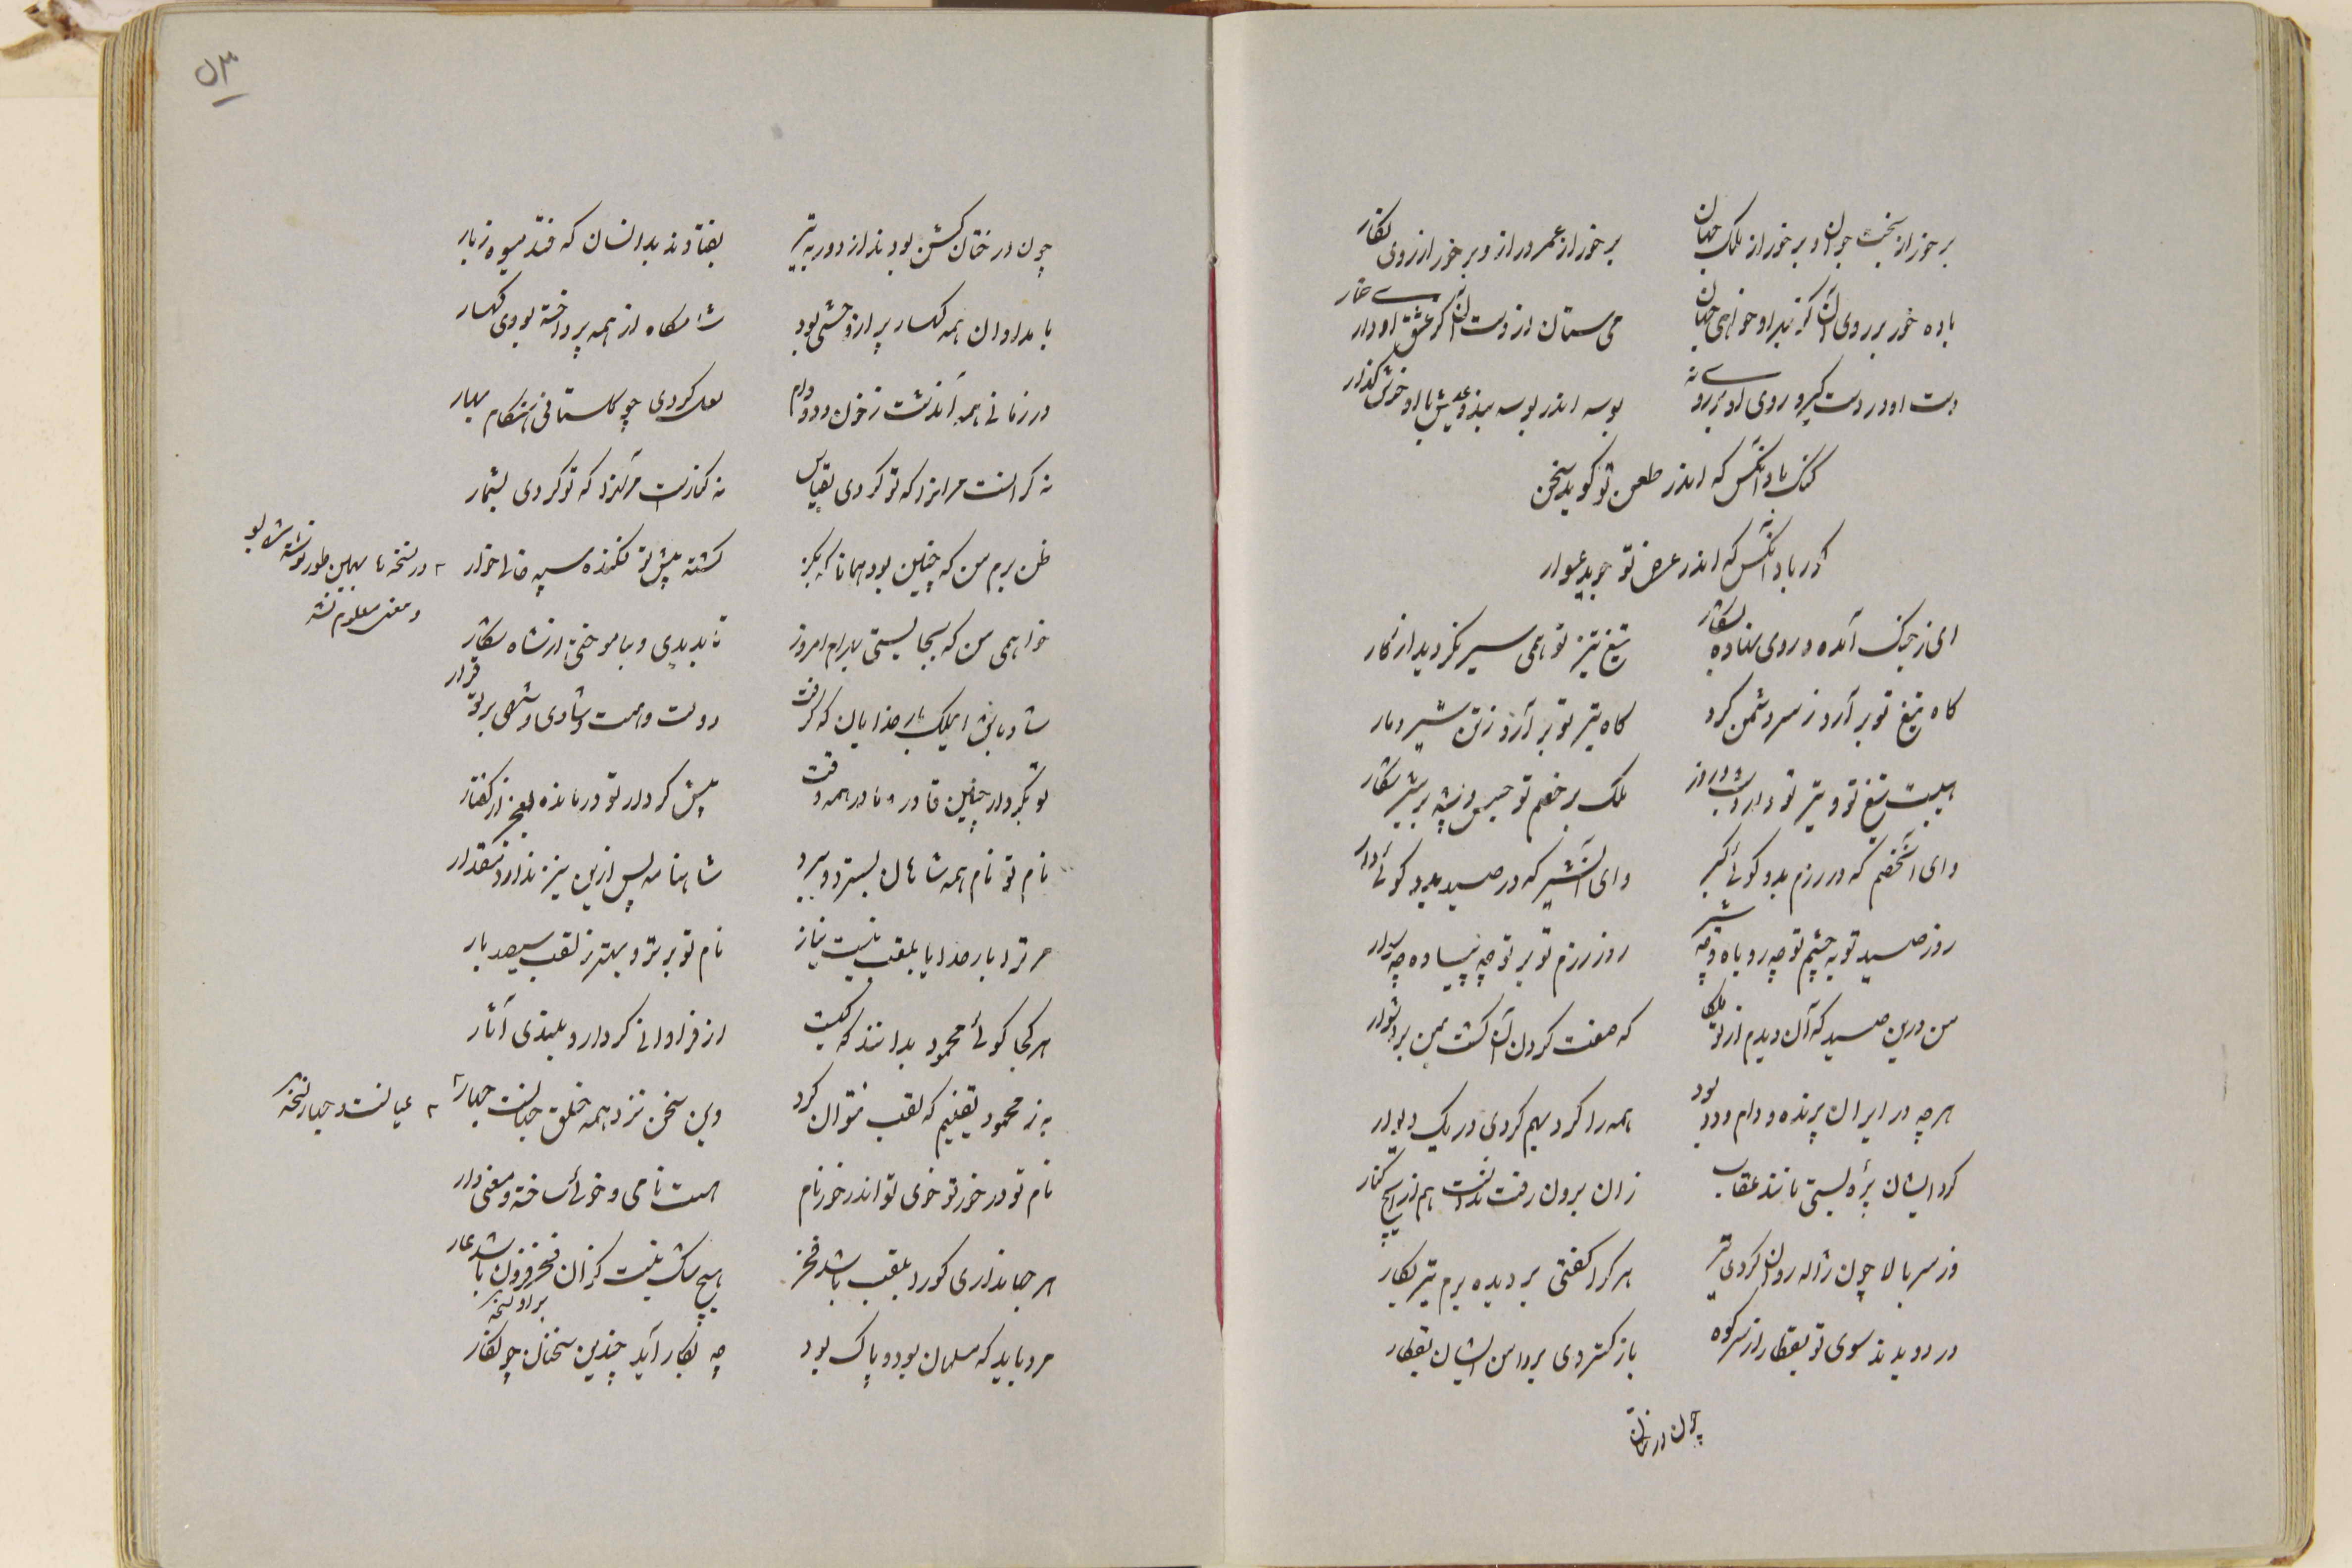 برخور از بخت جوان و برخور از ملک جهان برخور از عمر دراز و برخور از روی نگار
باده خور بر روی آن کز پی او خواهی جهان می ستان از دست آن کز عشق او داری خمار
دست او در دست گیر و روی او بر روی نه بوسه اندر بوسه بند و عیش با او خوش گذار
گنگ باد آنکس که اندر طعن تو گوید سخن
کور باد آنکس که اندر عرض تو جوید عوار
ای ز جنگ آمده و روی نهاده بشکار تیغ تیز تو همی سیر نگردید از کار
گاه تیغ تو بر آرد ز سر دشمن گرد گاه تیر تو بر آرد ز تن شیر دمار
هیبت تیغ تو و تیر تو دارد شب و روز ملک بر خصم تو حبس و بیشه بر شیر حصار
وای آن خصم که در رزم بدو گوئی گیر وای آن شیر که در صید بدو گوئی دار
روز صید تو به چشم تو چه روباه و چه شیر روز رزم تو بر تو چه پیاده چه سوار
من درین صید که آن دیدم از تو ملکا که صفت کردن آن گشت بمن بر دشوار
هر چه در ایران پرنده و دام و دد بود همه را گرد بهم کردی در یک دیوار
گرد ایشان پره بستی مانند عقاب زان برون رفت ندانست هم از هیچ کنار
وز سر بالا چون ژاله روان کردی تیر هر کرا گفتی بر دیده برم تیر بکار
در دویدند سوی تو بقطار از سر کوه باز گستردی بر دامن ایشان بقطار
چون درختان
۵۳
چون درختان گشن بودند از دور به تیر بفتادند بدانسان که فتد میوه ز بار
بامدادان همه کهسار پر از وحشی بود شامگاه از همه پرداخته بودی کهسار
در زمانی همه آن دشت ز خون دد و دام لعل کردی چو گلستانی هنگام بهار
نه گرانست مر آنرا که تو کردی بقیاس نه کنارست مر آنرا که تو کردی بشمار
ظن برم من که چنین بود همانا که بکز کشته پیش تو فکنده سپه خان خوار
در نسخه ها بهمین طور نوشته شده بود
و معنی معلوم نشد
خواهمی من که بجایستی بهرام امروز تا بدیدی و بیاموختی از شاه شکار
شادباش ای ملک بار خدایان که گرفت دولت و همت و شادی و شهی بر تو قرار
تو بکردار چنین قادر و ما در همه وقت پیش کردار تو درمانده بعجز از گفتار
نام تو نام همه شاهان بسترد و ببرد شاهنامه پس ازین نیز ندارد مقدار
مر ترا بار خدایا بلقب نیست نیاز نام تو برتر و بهتر ز لقب سیصد بار
هر کجا گوئی محمود بدانند که کیست از فراوانی کردار و بلندی آثار
به ز محمود یقینم که لقب نتوان کرد وین سخن نزد همه خلق عیانست جهار
عیانست و جهار نسخه
نام تو در خور تو خوی تو اندر خور نام اینت نامی و خوئی ساخته و معنی دار
هر جهانداری کورد بلقب باشد فخر هیچ شک نیست کزان فخر فزون باشد عار
بر او نسخه
مرد باید که مسلمان بود و پاک بود چه بکار آید چندین سخنان چو نگار